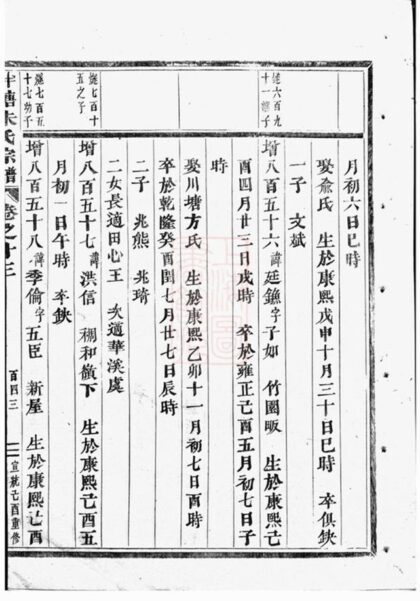 月初六日巳時
娶俞氏 生於康熙戊申十月三十日巳時 卒俱缺
一子 文斌
增八百五十六諱廷鑣字子如 竹園畈 生於康熙己
酉四月廿三日戌時 卒於雍正己酉五月初七日子
時
娶川塘方氏 生於康熙乙卯十一月初七日酉時
卒於乾隆癸酉閏七月廿七日辰時
二子 兆熊 兆琦
二女長適田心王 次適華溪虞
增八百五十七諱洪信 棚和嶺下 生於康熙己酉五
月初一日午時 卒缺
增八百五十八諱季倫字五臣 新屋 生於康熙己酉
謐六百九
十一繼子
謐七百十
五之子
謐七百五
十七幼子
塘朱氏宗譜
卷之十三
百四三
宣統己酉重修